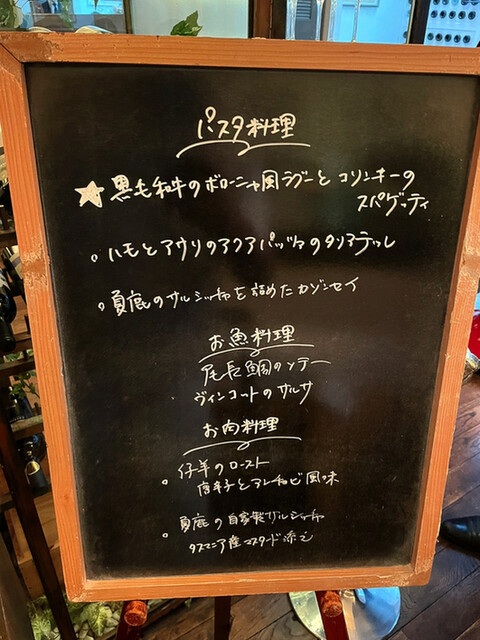 パスタ料理
黒毛和牛のボローニャ風ラグーとコリンキーの
スパゲッティ
ハモとアサリのアクアパッツァのタリアテッレ
夏鹿のサルシッチャを詰めたカゾンセイ
お魚料理
尾長鯛のソテー
ヴィンコットのサルサ
お肉料理
仔羊のロースト
唐辛子とアンチョビ風味
夏鹿の自家製サルシッチャ
タスマニア産マスタード添え